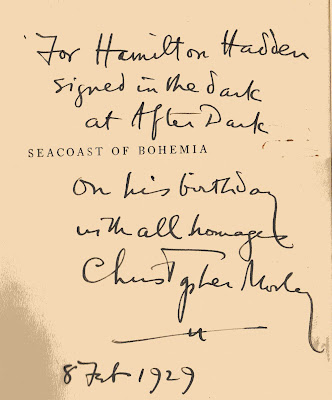 For Hamilton Hadden
signed in the dark
at After Dark
SEACOAST OF BOHEMIA
On his birthday
with all homage
Christopher Morley
8 Feb 1929